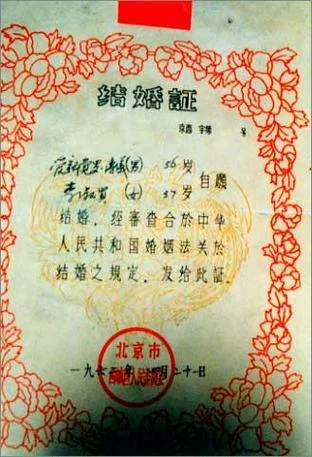 结婚証
京西 字第 号
爱新觉罗·溥(男) 56岁
李淑贤(女) 37岁 自願
結婚，经審查合於中华
人民共和国婚姻法关於
結婚之規定，发给此証。
北京市
一九六二年 四月二十一日